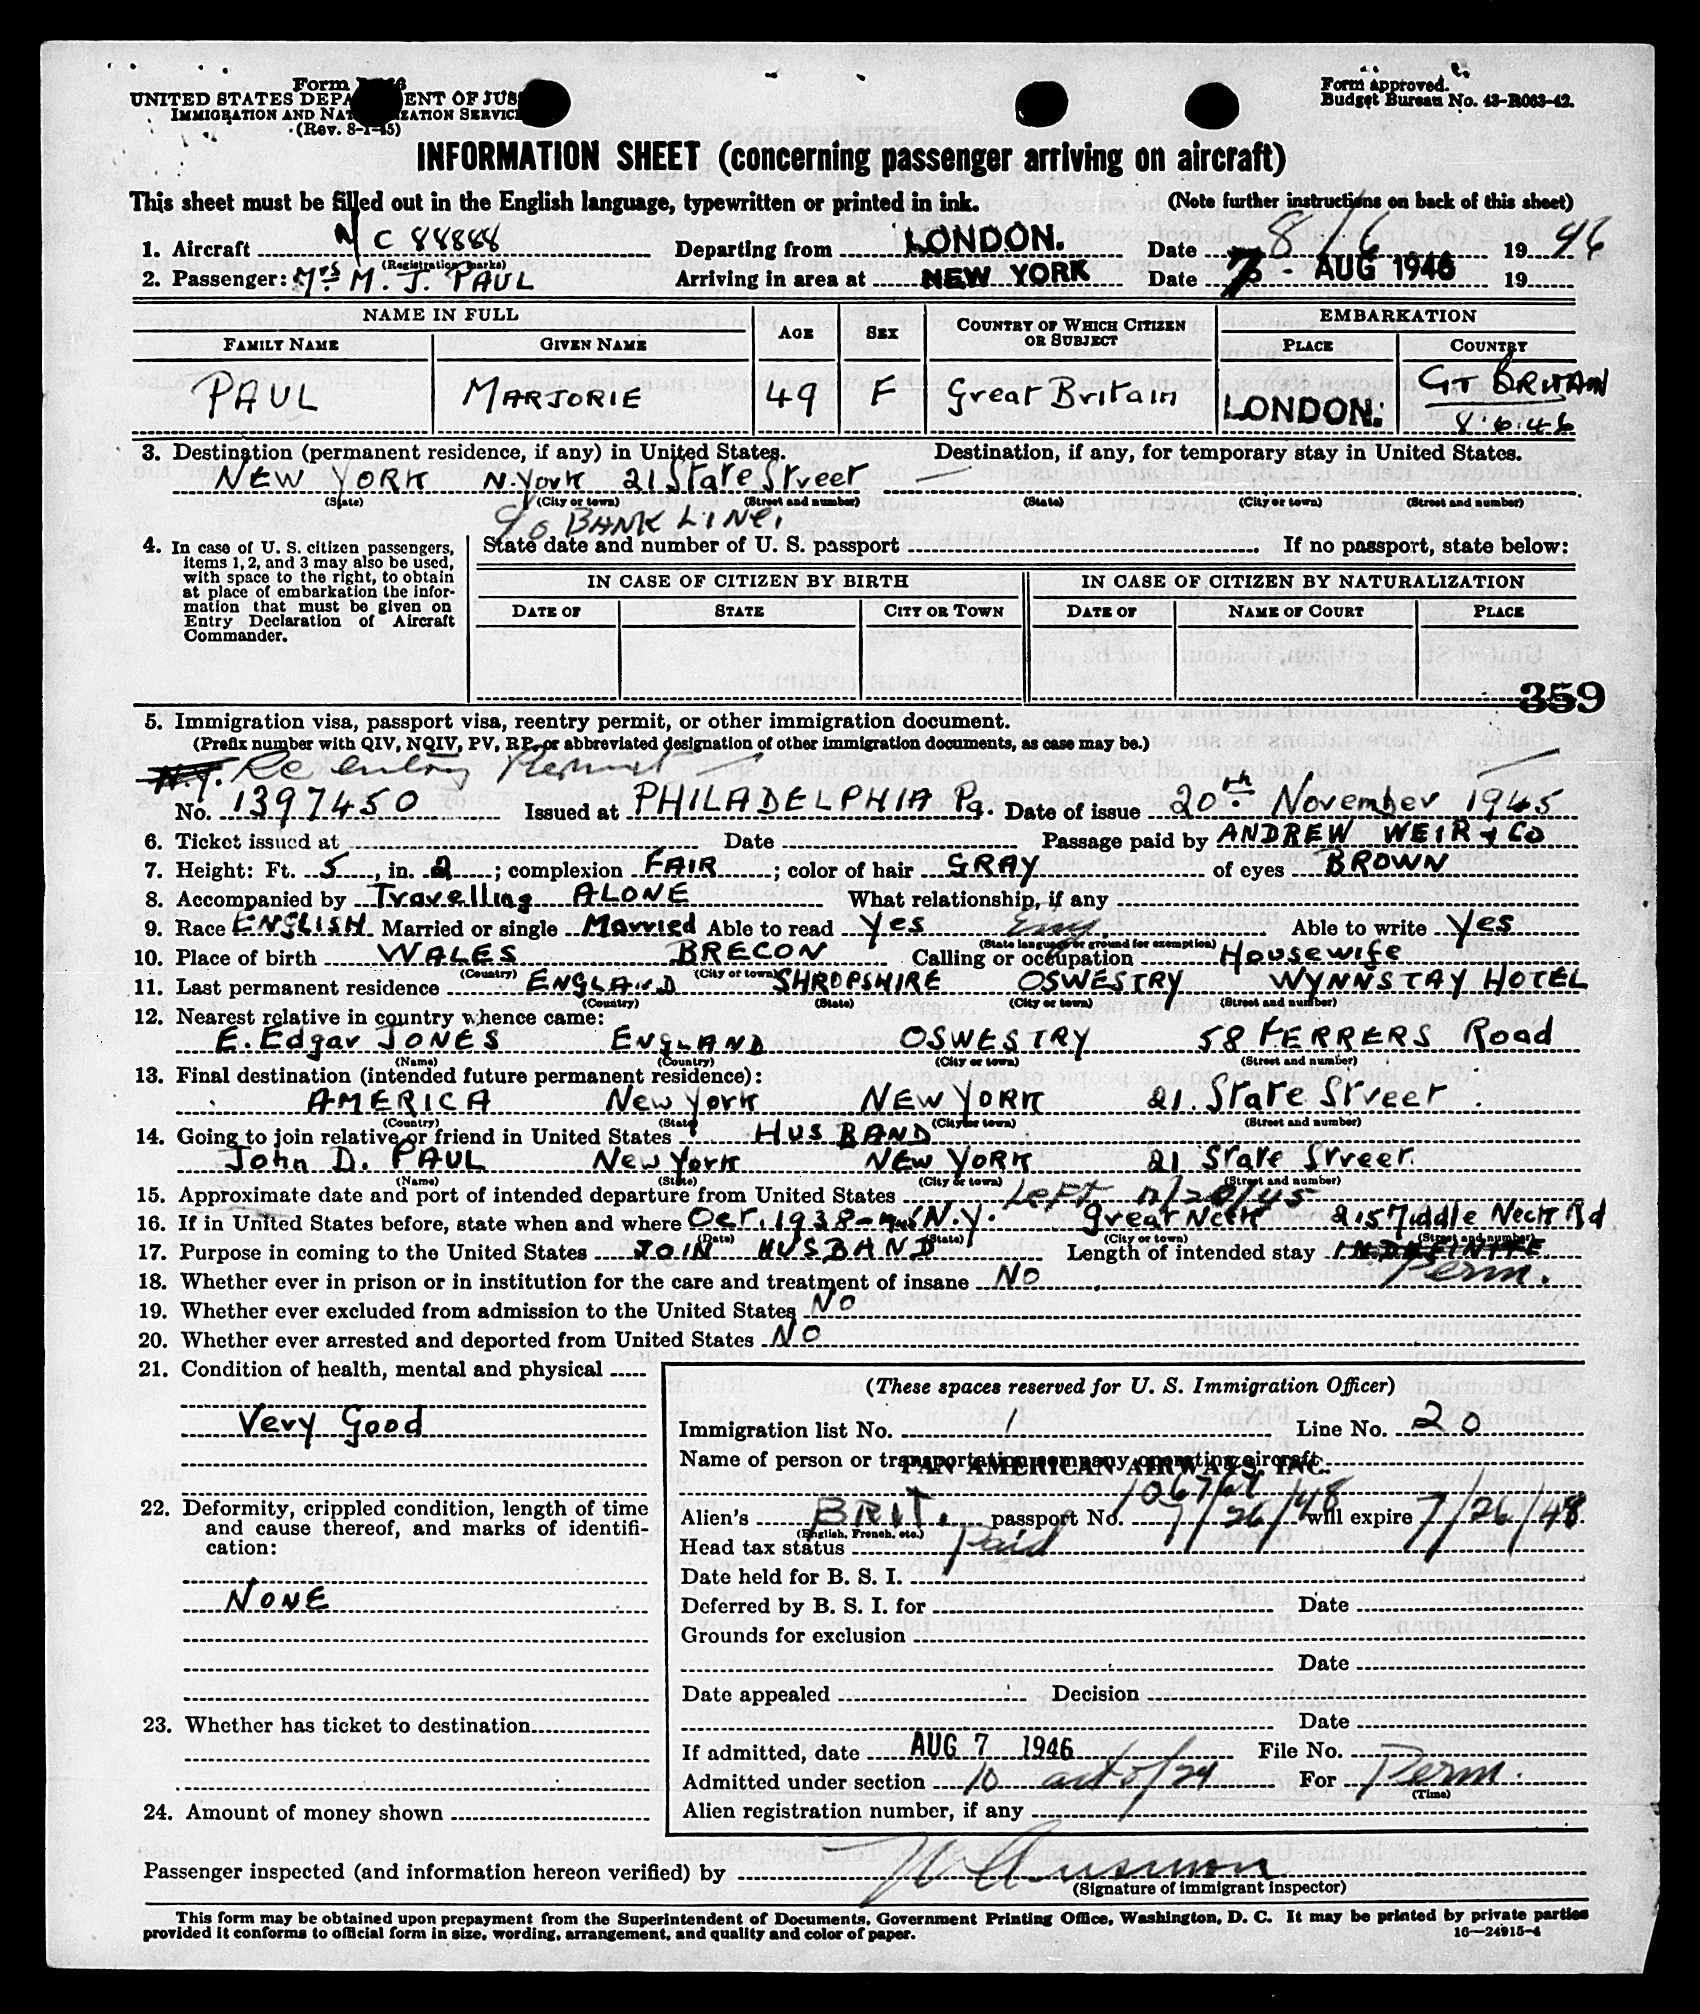 Form
UNITED STATES DEPA ENT OF JUS
IMMIGRATION AND NAT IZATION SERVIC
(Rev. 8-1-45)
Form approved.
Budget Bureau No. 43-R063-42.
INFORMATION SHEET (concerning passenger arriving on aircraft)
This sheet must be filled out in the English language, typewritten or printed in ink. (Note further instructions on back of this sheet)
1. Aircraft NC 88888 Departing from LONDON. Date 8/6 1946
(Registration marks)
2. Passenger: Mrs M. J. PAUL Arriving in area at NEW YORK Date 7 - AUG 1946 19
NAME IN FULL AGE SEX COUNTRY OF WHICH CITIZEN OR SUBJECT EMBARKATION
FAMILY NAME GIVEN NAME PLACE COUNTRY
PAUL MARJORIE 49 F Great Britain LONDON. GT BRITAN
8.6.46
3. Destination (permanent residence, if any) in United States. Destination, if any, for temporary stay in United States.
NEW YORK N. York 21 State Street
(State) (City or town) (Street and number) (State) (City or town) (Street and number)
c/o BANK LINE.
4. In case of U. S. citizen passengers, items 1, 2, and 3 may also be used, with space to the right, to obtain at place of embarkation the information that must be given on Entry Declaration of Aircraft Commander.
State date and number of U. S. passport If no passport, state below:
IN CASE OF CITIZEN BY BIRTH IN CASE OF CITIZEN BY NATURALIZATION
DATE OF STATE CITY OR TOWN DATE OF NAME OF COURT PLACE
359
5. Immigration visa, passport visa, reentry permit, or other immigration document.
(Prefix number with QIV, NQIV, PV, RP, or abbreviated designation of other immigration documents, as case may be.)
N.Y. Re entry Permit
No. 1397450 Issued at PHILADELPHIA Pa. Date of issue 20th November 1945
6. Ticket issued at Date Passage paid by ANDREW WEIR & Co
7. Height: Ft. 5, in. 2; complexion FAIR; color of hair GRAY of eyes BROWN
8. Accompanied by Travelling ALONE What relationship, if any
9. Race ENGLISH Married or single Married Able to read Yes Eng. Able to write Yes
(State language or ground for exemption)
10. Place of birth WALES BRECON Calling or occupation Housewife
(Country) (City or town)
11. Last permanent residence ENGLAND SHROPSHIRE OSWESTRY WYNNSTAY HOTEL
(Country) (State) (City or town) (Street and number)
12. Nearest relative in country whence came:
E. Edgar JONES ENGLAND OSWESTRY 58 FERRERS Road
(Name) (Country) (City or town) (Street and number)
13. Final destination (intended future permanent residence):
AMERICA New York NEW YORK 21. State Street
(Country) (State) (City or town) (Street and number)
14. Going to join relative or friend in United States HUSBAND
John D. PAUL New York NEW YORK 21 State Street.
(Name) (State) (City or town) (Street and number)
15. Approximate date and port of intended departure from United States Left 11/20/45
16. If in United States before, state when and where Oct. 1938- N.Y. Great Neck 215 Middle Neck Rd
(Date) (State) (City or town) (Street and number)
17. Purpose in coming to the United States JOIN HUSBAND Length of intended stay INDEFINITE
Perm.
18. Whether ever in prison or in institution for the care and treatment of insane NO
19. Whether ever excluded from admission to the United States NO
20. Whether ever arrested and deported from United States NO
21. Condition of health, mental and physical
Very Good
22. Deformity, crippled condition, length of time and cause thereof, and marks of identification:
NONE
23. Whether has ticket to destination
24. Amount of money shown
(These spaces reserved for U. S. Immigration Officer)
Immigration list No. 1 Line No. 20
Name of person or transportation company operating aircraft
PAN AMERICAN AIRWAYS, INC.
106769
Alien's BRIT. passport No. 7/26/48 will expire 7/26/48
(English, French, etc.)
Head tax status Paid
Date held for B. S. I.
Deferred by B. S. I. for Date
Grounds for exclusion
Date
Date appealed Decision
Date
If admitted, date AUG 7 1946 File No.
Admitted under section 10 act of 24 For Perm.
(Time)
Alien registration number, if any
Passenger inspected (and information hereon verified) by
(Signature of immigrant inspector)
This form may be obtained upon prepayment from the Superintendent of Documents, Government Printing Office, Washington, D. C. It may be printed by private parties
provided it conforms to official form in size, wording, arrangement, and quality and color of paper. 16—24915-4